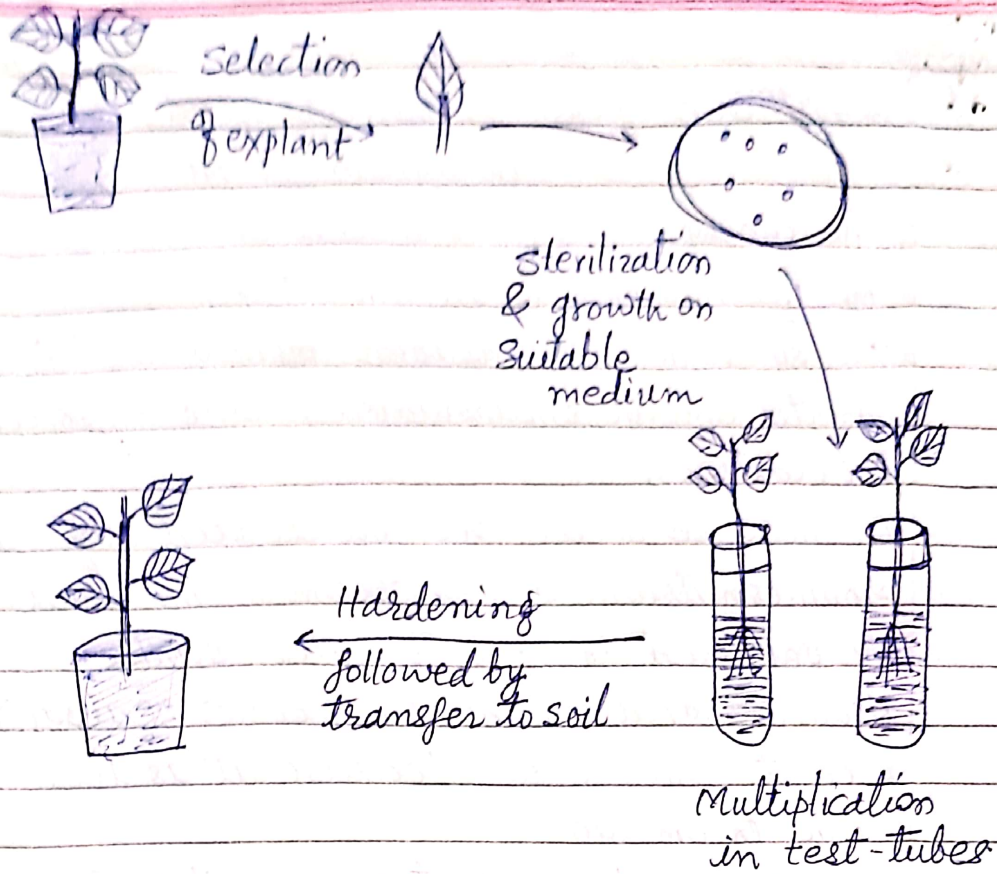 Selection
of explant
Sterilization
& growth on
Suitable
medium
Hardening
followed by
transfer to soil
Multiplication
in test-tubes